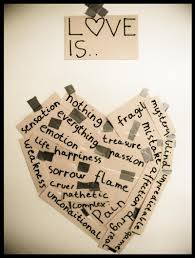 LOVE
IS..
nothing
sensation
everything
emotion
life happiness
weakness
treasure
passion
fragile
mystery
mistake
affection
sorrow flame
cruel
pathetic
complex
unconditional
pain